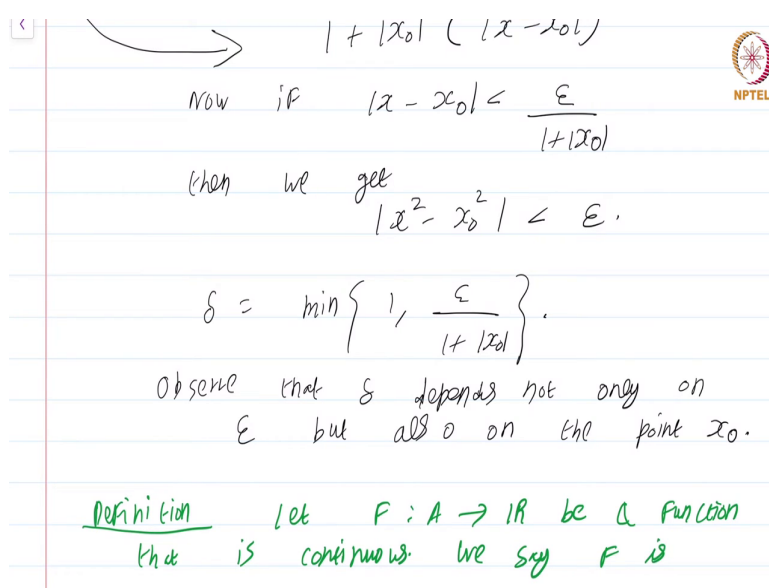 1 + |x₀| ( |x - x₀|)
NPTEL
Now if |x - x₀| < ε / 1+|x₀|
then we get
|x² - x₀²| < ε.
δ = min{ 1, ε / 1+ |x₀| }.
Observe that δ depends not only on
ε but also on the point x₀.
Definition Let F : A → IR be a function
that is continuous. We say F is